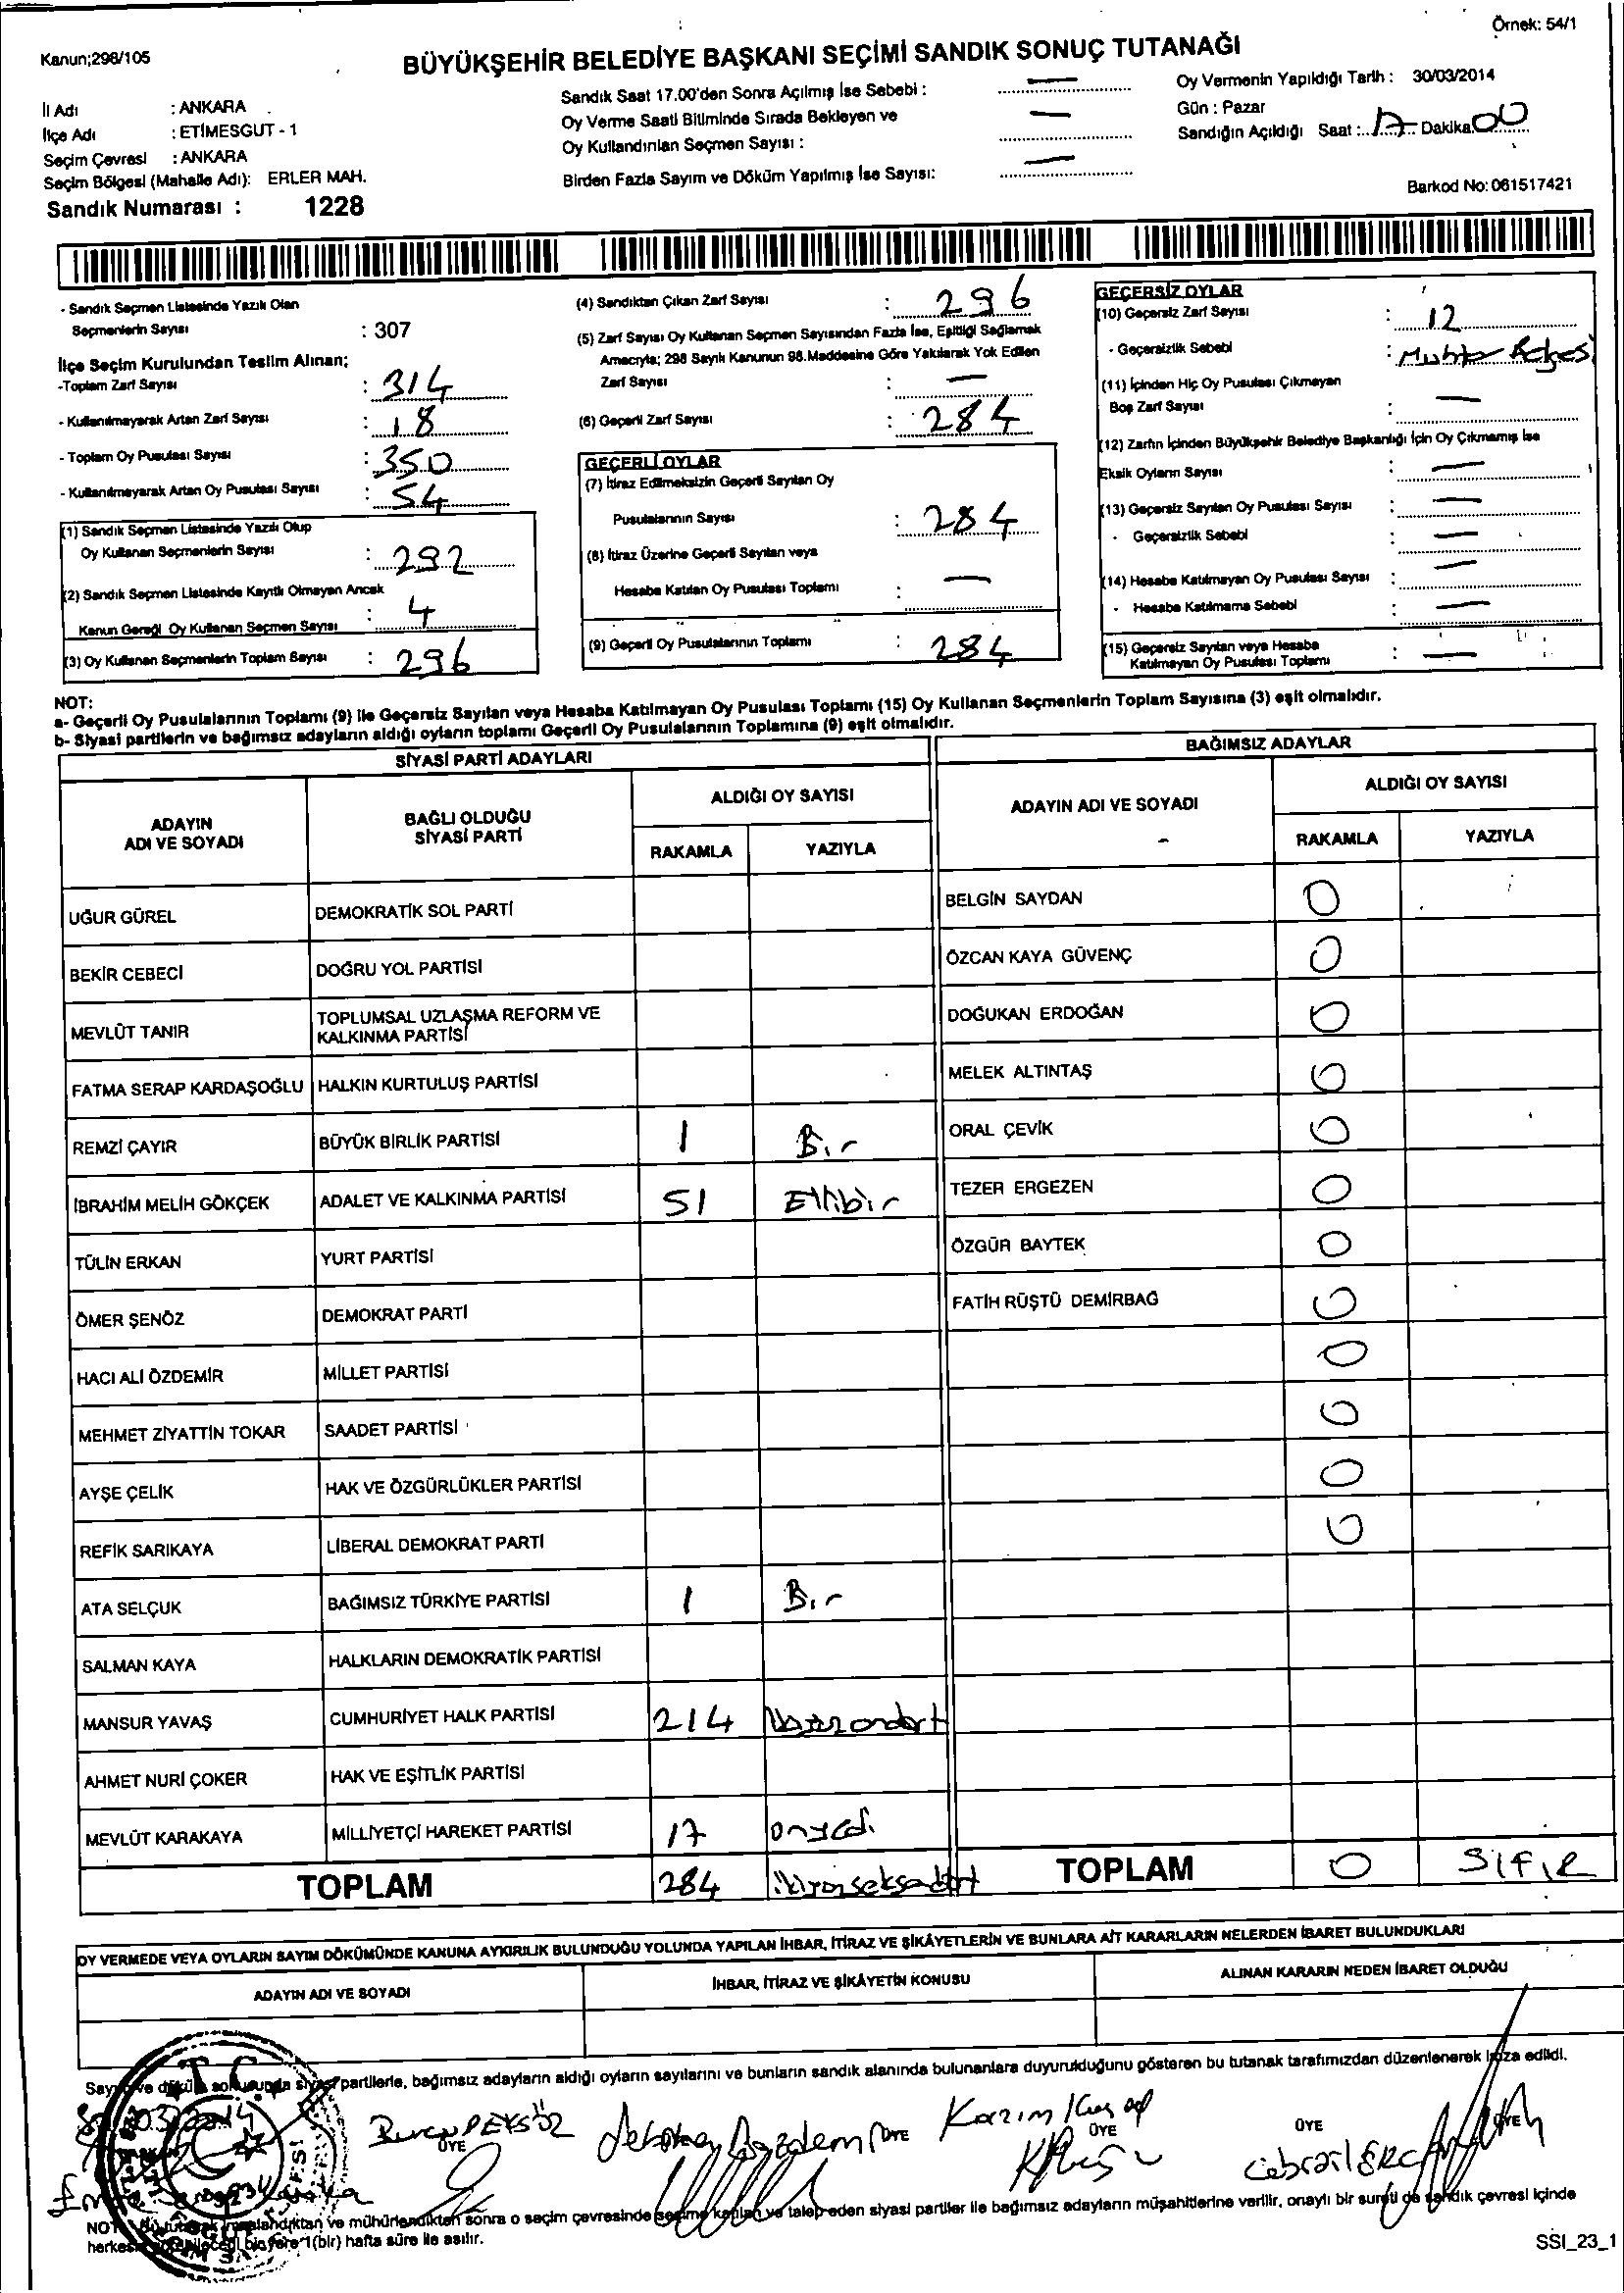 Örnek: 54/1
Kanun;298/105
BÜYÜKŞEHİR BELEDİYE BAŞKANI SEÇİMİ SANDIK SONUÇ TUTANAĞI
İl Adı : ANKARA
İlçe Adı : ETİMESGUT - 1
Seçim Çevresi : ANKARA
Seçim Bölgesi (Mahalle Adı): ERLER MAH.
Sandık Numarası : 1228
Sandık Saat 17.00'den Sonra Açılmış İse Sebebi : —
Oy Verme Saati Bitiminde Sırada Bekleyen ve
Oy Kullandırılan Seçmen Sayısı : —
Birden Fazla Sayım ve Döküm Yapılmış İse Sayısı: —
Oy Vermenin Yapıldığı Tarih : 30/03/2014
Gün : Pazar
Sandığın Açıldığı Saat : 17 Dakika 00
Barkod No: 061517421
- Sandık Seçmen Listesinde Yazılı Olan
Seçmenlerin Sayısı : 307
İlçe Seçim Kurulundan Teslim Alınan;
-Toplam Zarf Sayısı : 314
- Kullanılmayarak Artan Zarf Sayısı : 18
- Toplam Oy Pusulası Sayısı : 350
- Kullanılmayarak Artan Oy Pusulası Sayısı : 54
(1) Sandık Seçmen Listesinde Yazılı Olup
Oy Kullanan Seçmenlerin Sayısı : 292
(2) Sandık Seçmen Listesinde Kayıtlı Olmayan Ancak
Kanun Gereği Oy Kullanan Seçmen Sayısı : 4
(3) Oy Kullanan Seçmenlerin Toplam Sayısı : 296
(4) Sandıktan Çıkan Zarf Sayısı : 296
(5) Zarf Sayısı Oy Kullanan Seçmen Sayısından Fazla İse, Eşitliği Sağlamak
Amacıyla; 298 Sayılı Kanunun 98.Maddesine Göre Yakılarak Yok Edilen
Zarf Sayısı : —
(6) Geçerli Zarf Sayısı : 284
GEÇERLİ OYLAR
(7) İtiraz Edilmeksizin Geçerli Sayılan Oy
Pusulalarının Sayısı : 284
(8) İtiraz Üzerine Geçerli Sayılan veya
Hesaba Katılan Oy Pusulası Toplamı : —
(9) Geçerli Oy Pusulalarının Toplamı : 284
GEÇERSİZ OYLAR
(10) Geçersiz Zarf Sayısı : 12
- Geçersizlik Sebebi :
(11) İçinden Hiç Oy Pusulası Çıkmayan
Boş Zarf Sayısı : —
(12) Zarfın İçinden Büyükşehir Belediye Başkanlığı İçin Oy Çıkmamış İse
Eksik Oyların Sayısı : —
(13) Geçersiz Sayılan Oy Pusulası Sayısı : —
- Geçersizlik Sebebi : —
(14) Hesaba Katılmayan Oy Pusulası Sayısı : —
- Hesaba Katılmama Sebebi : —
(15) Geçersiz Sayılan veya Hesaba
Katılmayan Oy Pusulası Toplamı : —
NOT:
a- Geçerli Oy Pusulalarının Toplamı (9) ile Geçersiz Sayılan veya Hesaba Katılmayan Oy Pusulası Toplamı (15) Oy Kullanan Seçmenlerin Toplam Sayısına (3) eşit olmalıdır.
b- Siyasi partilerin ve bağımsız adayların aldığı oyların toplamı Geçerli Oy Pusulalarının Toplamına (9) eşit olmalıdır.
SİYASİ PARTİ ADAYLARI
ADAYIN ADI VE SOYADI
BAĞLI OLDUĞU SİYASİ PARTİ
ALDIĞI OY SAYISI
RAKAMLA YAZIYLA
UĞUR GÜREL DEMOKRATİK SOL PARTİ
BEKİR CEBECİ DOĞRU YOL PARTİSİ
MEVLÜT TANIR TOPLUMSAL UZLAŞMA REFORM VE KALKINMA PARTİSİ
FATMA SERAP KARDAŞOĞLU HALKIN KURTULUŞ PARTİSİ
REMZİ ÇAYIR BÜYÜK BİRLİK PARTİSİ 1 Bir
İBRAHİM MELİH GÖKÇEK ADALET VE KALKINMA PARTİSİ 51 Ellibir
TÜLİN ERKAN YURT PARTİSİ
ÖMER ŞENÖZ DEMOKRAT PARTİ
HACI ALİ ÖZDEMİR MİLLET PARTİSİ
MEHMET ZİYATTİN TOKAR SAADET PARTİSİ
AYŞE ÇELİK HAK VE ÖZGÜRLÜKLER PARTİSİ
REFİK SARIKAYA LİBERAL DEMOKRAT PARTİ
ATA SELÇUK BAĞIMSIZ TÜRKİYE PARTİSİ 1 Bir
SALMAN KAYA HALKLARIN DEMOKRATİK PARTİSİ
MANSUR YAVAŞ CUMHURİYET HALK PARTİSİ 214
AHMET NURİ ÇOKER HAK VE EŞİTLİK PARTİSİ
MEVLÜT KARAKAYA MİLLİYETÇİ HAREKET PARTİSİ 17 onyedi
TOPLAM 284 ikiyüzseksendört
BAĞIMSIZ ADAYLAR
ADAYIN ADI VE SOYADI
ALDIĞI OY SAYISI
RAKAMLA YAZIYLA
BELGİN SAYDAN 0
ÖZCAN KAYA GÜVENÇ 0
DOĞUKAN ERDOĞAN 0
MELEK ALTINTAŞ 0
ORAL ÇEVİK 0
TEZER ERGEZEN 0
ÖZGÜR BAYTEK 0
FATİH RÜŞTÜ DEMİRBAĞ 0
0
0
0
0
TOPLAM 0 SIFIR
OY VERMEDE VEYA OYLARIN SAYIM DÖKÜMÜNDE KANUNA AYKIRILIK BULUNDUĞU YOLUNDA YAPILAN İHBAR, İTİRAZ VE ŞİKÂYETLERİN VE BUNLARA AİT KARARLARIN NELERDEN İBARET BULUNDUKLARI
ADAYIN ADI VE SOYADI
İHBAR, İTİRAZ VE ŞİKÂYETİN KONUSU
ALINAN KARARIN NEDEN İBARET OLDUĞU
T.C.
Sayım ve döküm sonucunda siyasi partilerle, bağımsız adayların aldığı oyların sayılarını ve bunların sandık alanında bulunanlara duyurulduğunu gösteren bu tutanak tarafımızdan düzenlenerek imza edildi.
ÜYE ÜYE ÜYE ÜYE
Kazım
NOT: Bu tutanak imzalandıktan ve mühürlendikten sonra o seçim çevresinde seçime katılan ve talep eden siyasi partiler ile bağımsız adayların müşahitlerine verilir, onaylı bir sureti de sandık çevresi içinde
herkesin görebileceği bir yere 1(bir) hafta süre ile asılır.
SSI_23_1